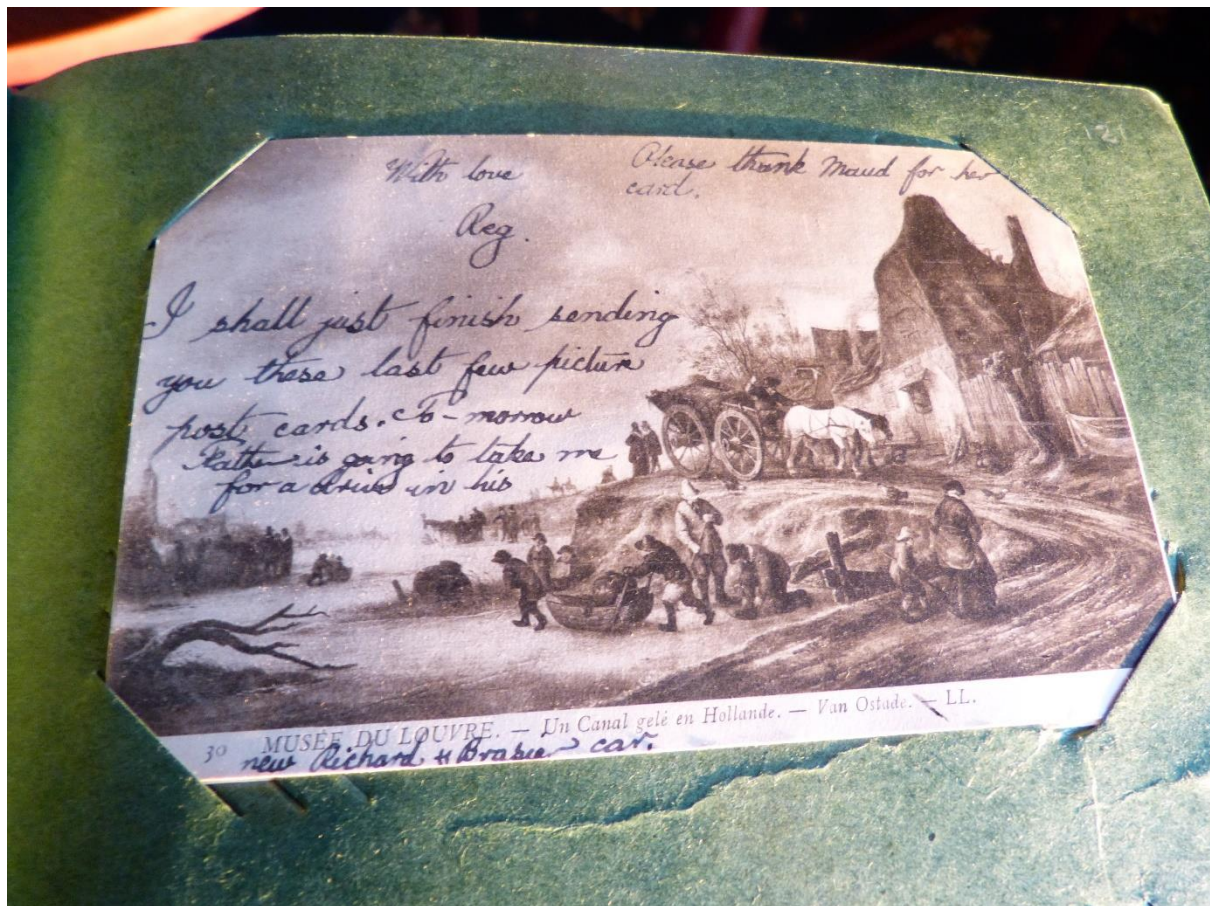 With love
Reg.
Please thank Maud for her
card.
I shall just finish sending
you these last few picture
post cards. To-morrow
Father is going to take me
for a drive in his
30 MUSÉE DU LOUVRE. — Un Canal gelé en Hollande. — Van Ostade. — LL.
new Richard & Brasier car.
121